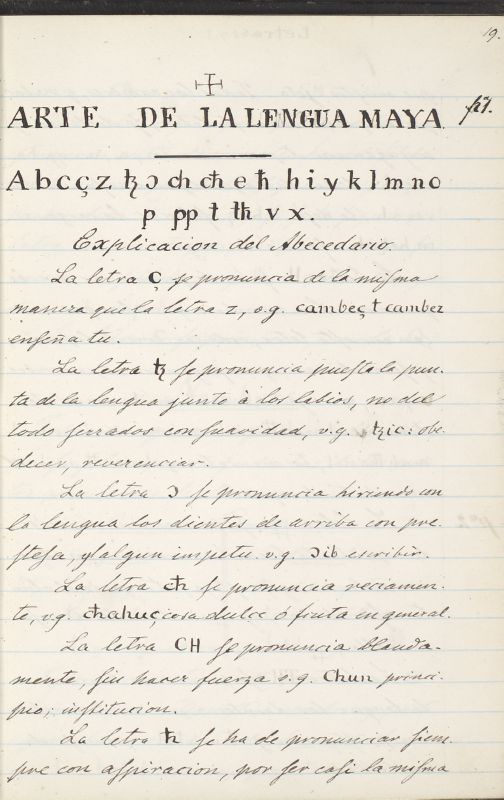 19.
ARTE DE LA LENGUA MAYA
A b c ç z ꜩ ɔ ch cħ e ħ h i y k l m n o
p pp t tħ v x.
Explicacion del Abecedario.
La letra ç ſe pronuncia de la miſma
manera que la letra z, v.g. cambeç t cambez
enſeña tu.
La letra ꜩ ſe pronuncia pueſta la pun-
ta de la lengua junto à los labios, no del
todo ſerrados con ſuavidad, v.g. ꜩic: obe
decer, reverenciar.
La letra ɔ ſe pronuncia hiriendo con
la lengua los dientes de arriba con pre-
ſteſa, y algun impetu. v.g. ɔib escribir.
La letra cħ ſe pronuncia reciamen-
te, v.g. cħahuç cosa dulce ó fruta en general.
La letra CH ſe pronuncia blanda-
mente, ſin hacer fuerza v.g. Chun princi-
pio; inſtitucion.
La letra ħ ſe ha de pronunciar ſiem-
pre con aſpiracion, por ſer caſi la miſma